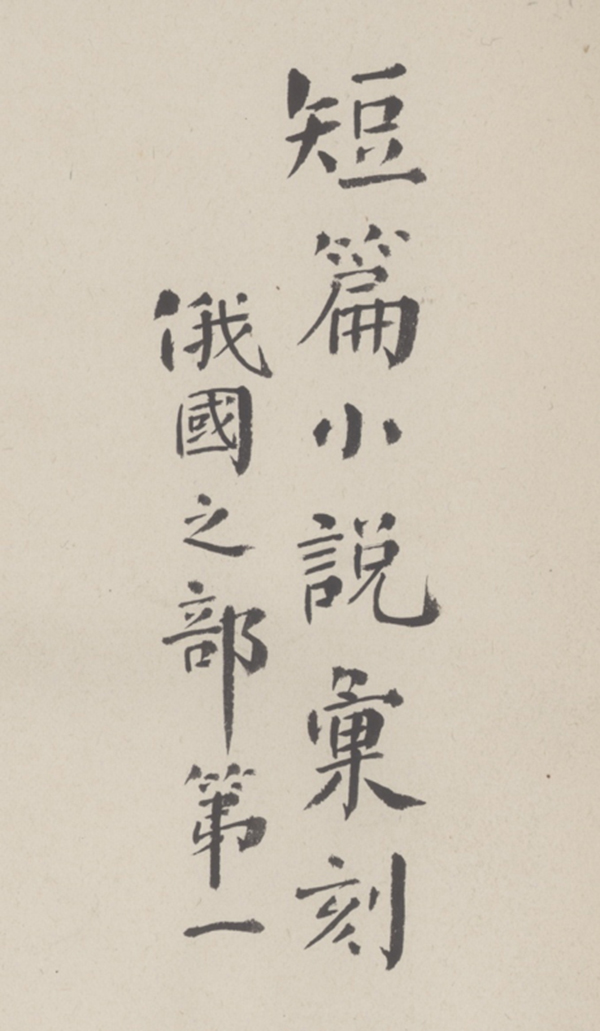 短篇小説彙刻
俄國之部第一